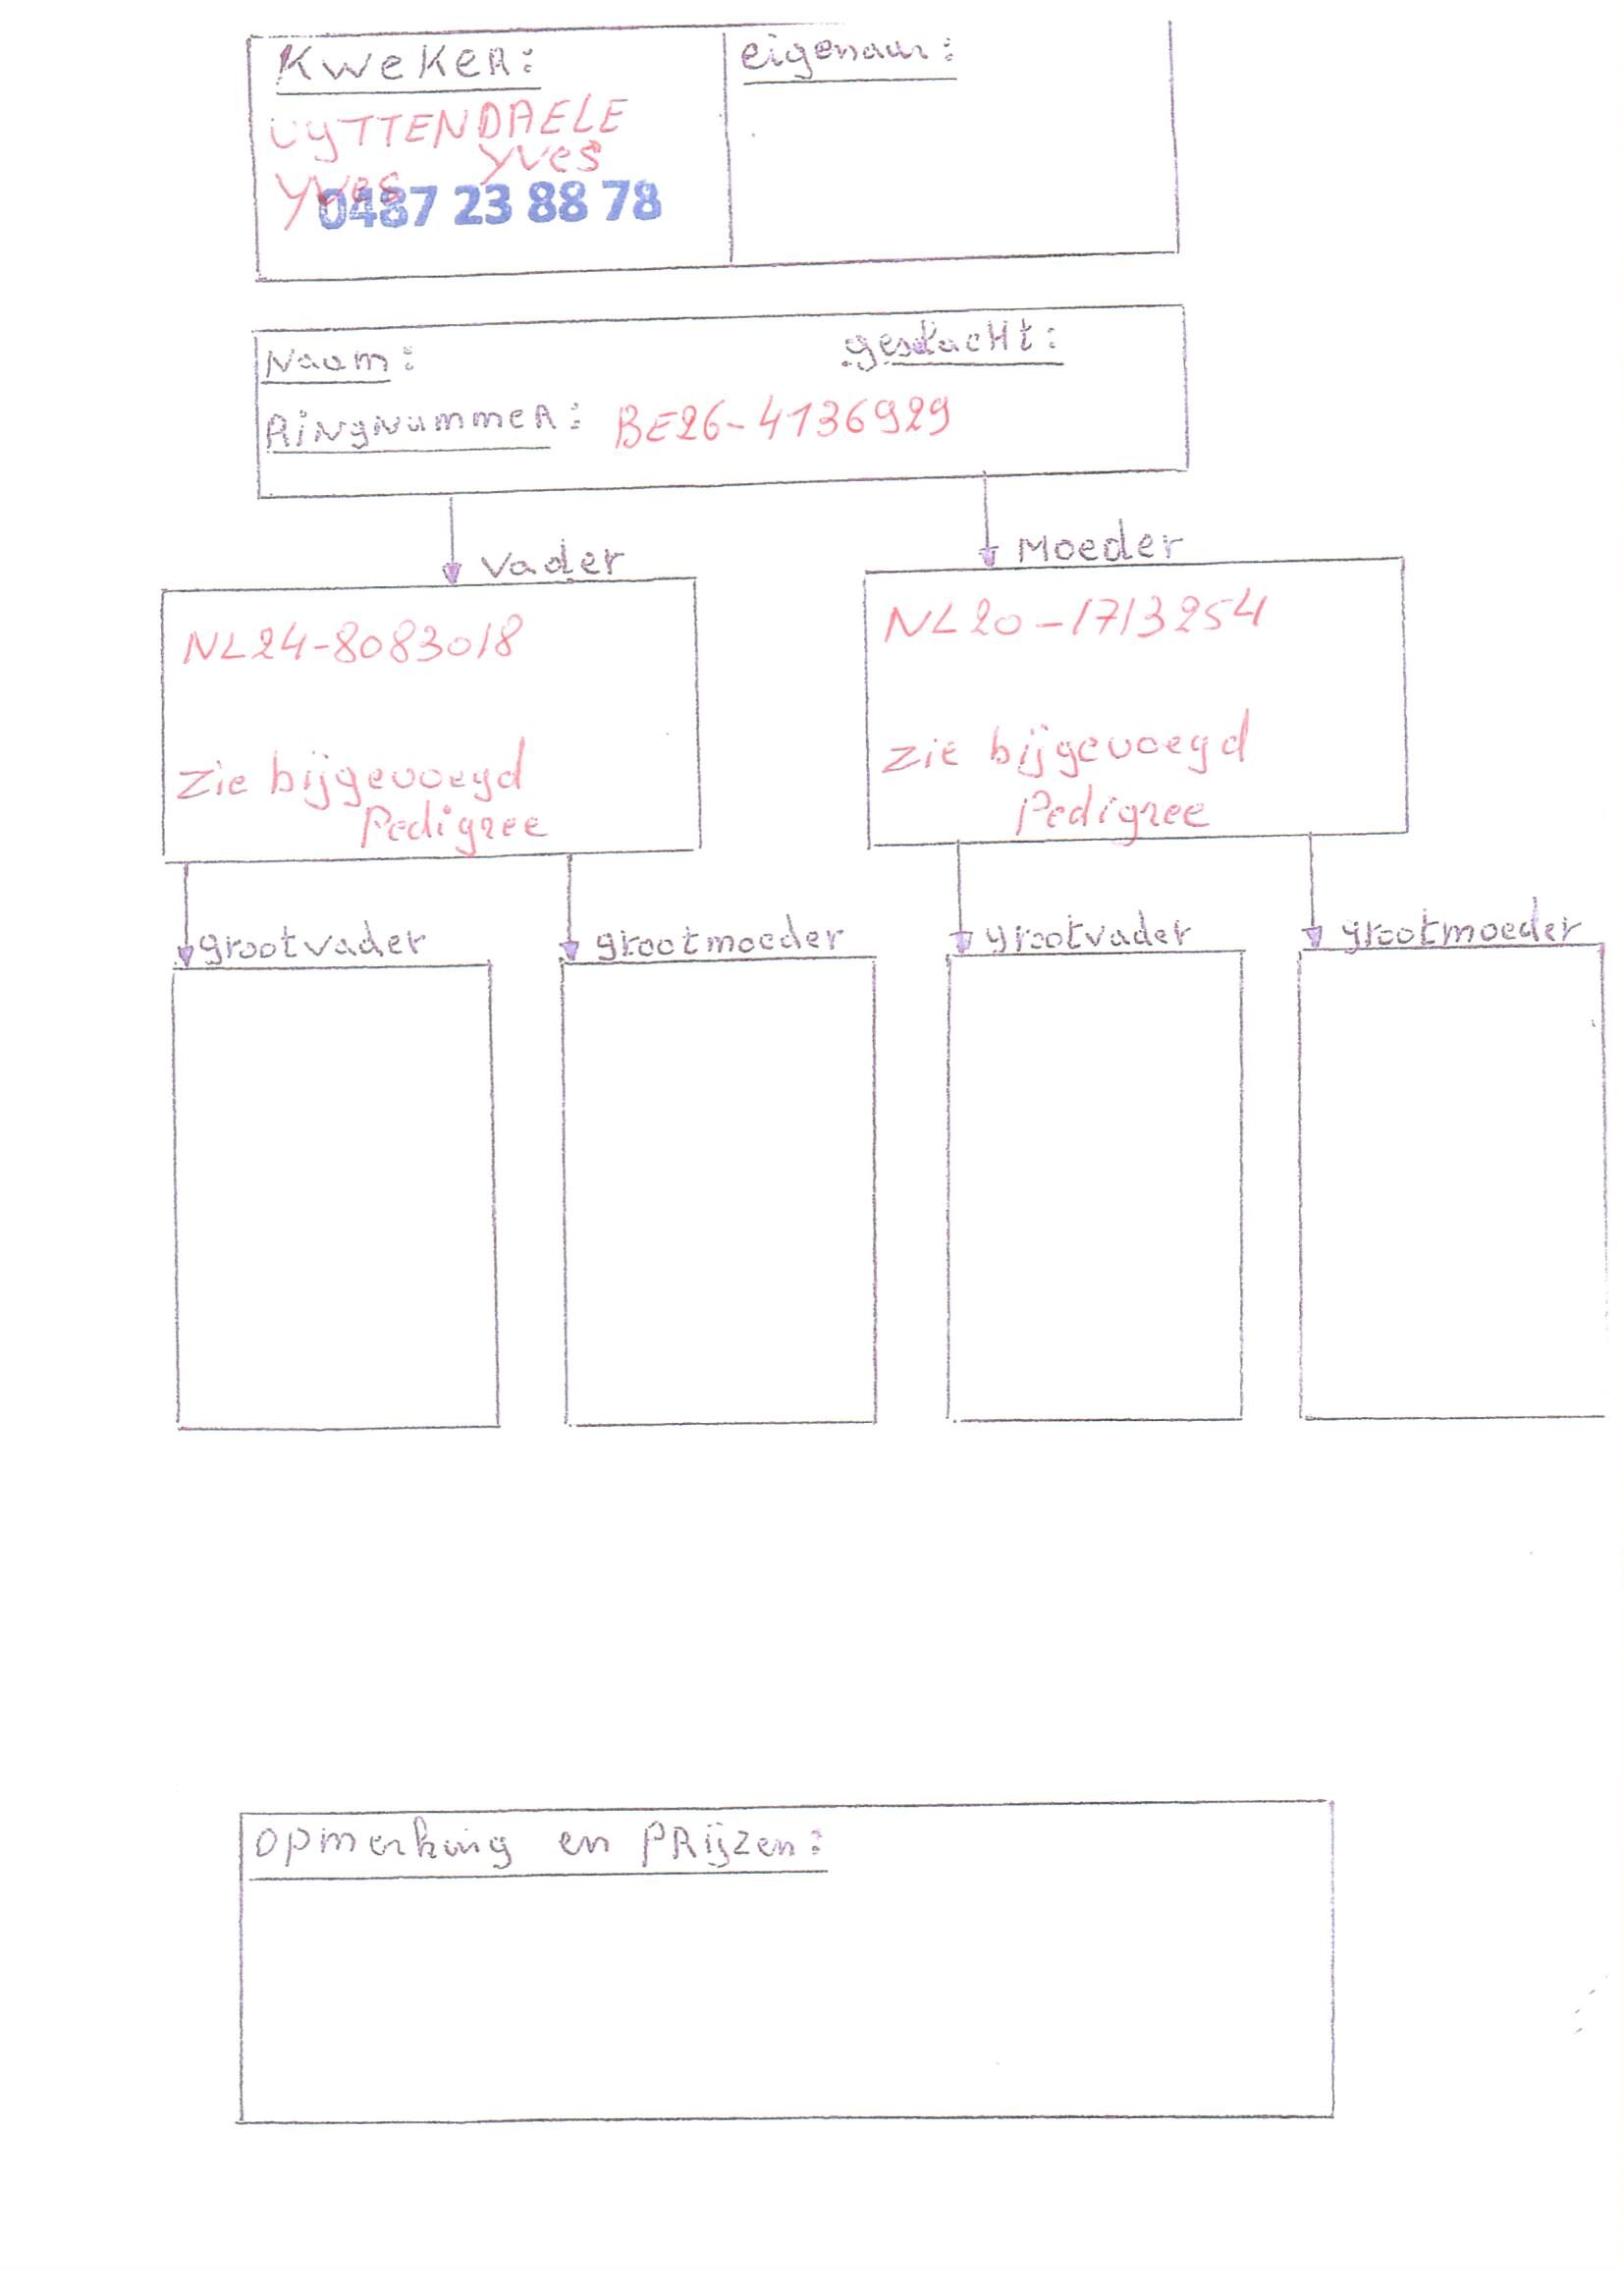 Kweker:
eigenaar:
UYTTENDAELE
Yves
Yves
0487 23 88 78
Naam:
geslacht:
Ringnummer: BE26-4136929
Vader
Moeder
NL24-8083018
NL20-1713254
Zie bijgevoegd
Pedigree
Zie bijgevoegd
Pedigree
grootvader
grootmoeder
grootvader
grootmoeder
opmerking en PRijzen: